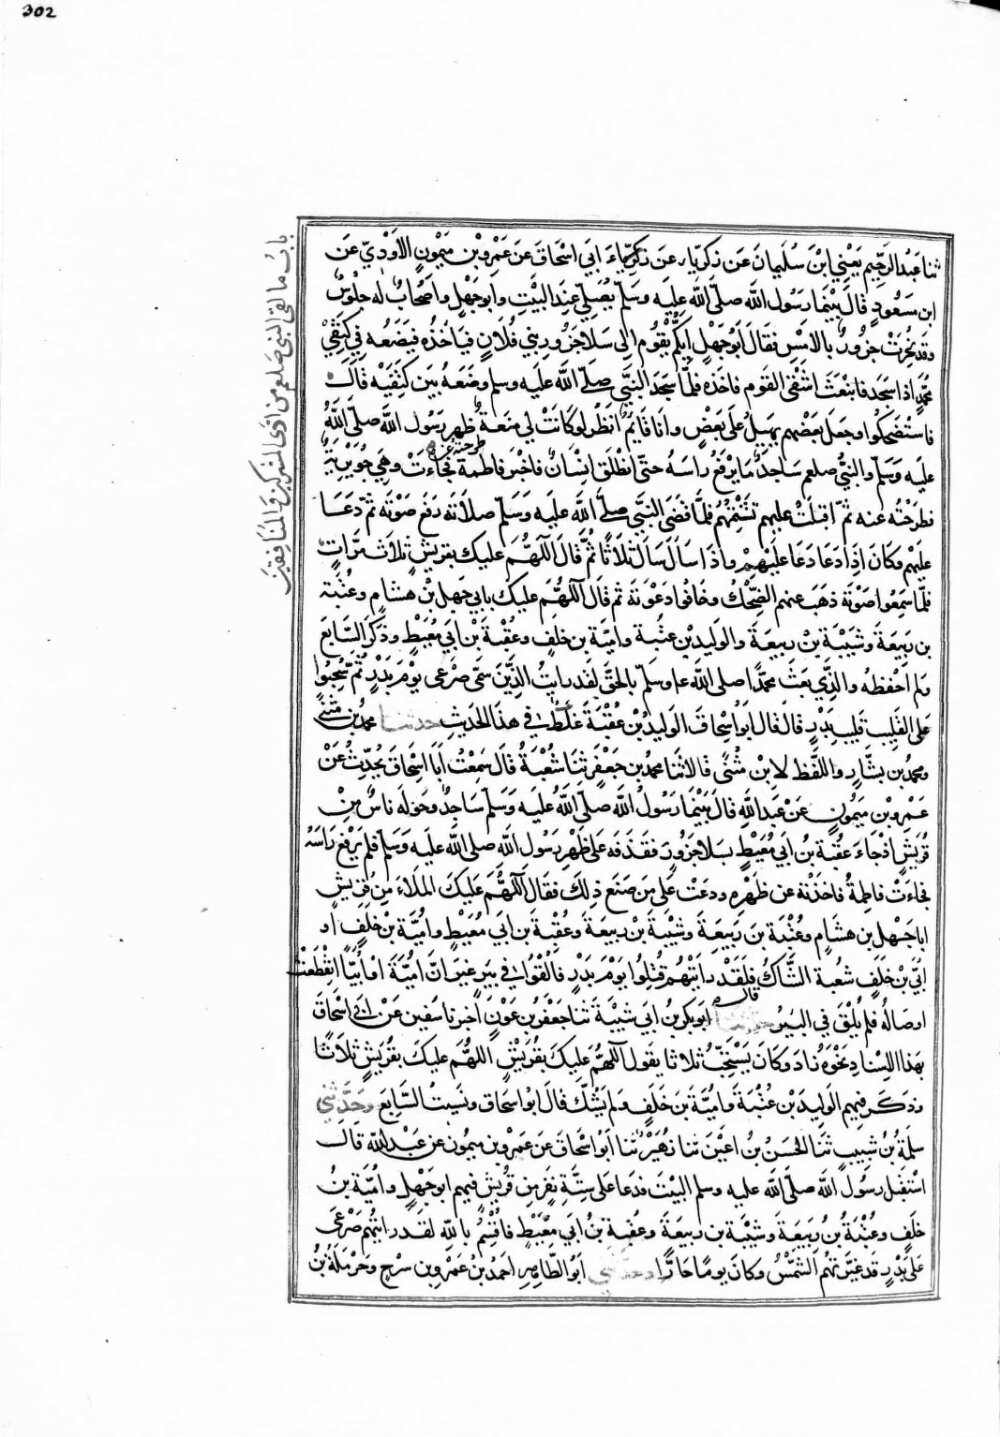 302
باب ما لقي النبي صلعم من اذى المشركين والمنافقين
ثنا عبد الرحيم يعني ابن سليمان عن زكرياء عن زكرياء ابي اسحاق عن عمرو بن ميمون الاودي عن
ابن مسعود قال بينما رسول الله صلى الله عليه وسلم يصلي عند البيت وابو جهل واصحاب له جلوس
وقد نحرت جزور بالامس فقال ابو جهل ايكم يقوم الى سلا جزور بني فلان فياخذه فيضعه في كتفي
محمد اذا سجد فانبعث اشقى القوم فاخذه فلما سجد النبي صلى الله عليه وسلم وضعه بين كتفيه قال
فاستضحكوا وجعل بعضهم يميل على بعض وانا قايم انظر لو كانت لي منعة طرحته عن ظهر رسول الله صلى الله
عليه وسلم والنبي صلعم ساجد ما يرفع راسه حتى انطلق انسان فاخبر فاطمة فجاءت وهي جويرية
فطرحته عنه ثم اقبلت عليهم تشتمهم فلما قضى النبي صلى الله عليه وسلم صلاته رفع صوته ثم دعا
عليهم وكان اذا دعا دعا عليهم واذا سال سال ثلاثا ثم قال اللهم عليك بقريش ثلاث مرات
فلما سمعوا صوته ذهب عنهم الضحك وخافوا دعوته ثم قال اللهم عليك بابي جهل بن هشام وعتبة
بن ربيعة وشيبة بن ربيعة والوليد بن عتبة وامية بن خلف وعقبة بن ابي معيط وذكر السابع
ولم احفظه والذي بعث محمدا صلى الله عليه وسلم بالحق لقد رايت الذين سمى صرعى يوم بدر ثم سحبوا
على القليب قليب بدر قال قال ابو اسحاق الوليد بن عقبة غلط في هذا الحديث حدثنا محمد بن مثنى
ومحمد بن بشار واللفظ لابن مثنى قالا ثنا محمد بن جعفر ثنا شعبة قال سمعت ابا اسحاق يحدث عن
عمرو بن ميمون عن عبد الله قال بينما رسول الله صلى الله عليه وسلم ساجد وحوله ناس من
قريش اذ جاء عقبة بن ابي معيط بسلا جزور فقذفه على ظهر رسول الله صلى الله عليه وسلم فلم يرفع راسه
فجاءت فاطمة فاخذته عن ظهره ودعت على من صنع ذلك فقال اللهم عليك الملاء من قريش
ابا جهل بن هشام وعتبة بن ربيعة وشيبة بن ربيعة وعقبة بن ابي معيط وامية بن خلف او
ابي بن خلف شعبة الشاك قال فلقد رايتهم قتلوا يوم بدر فالقوا في بير غير ان امية او ابيا انقطعت
اوصاله فلم يلق في البير حدثنا ابو بكر بن ابي شيبة ثنا جعفر بن عون اخبرنا سفين عن ابي اسحاق
بهذا الاسناد نحوه زاد وكان يستحب ثلاثا يقول اللهم عليك بقريش اللهم عليك بقريش ثلاثا
وذكر فيهم الوليد بن عتبة وامية بن خلف ولم يشك قال ابو اسحاق ونسيت السابع وحدثني
سلمة بن شبيب ثنا الحسن بن اعين ثنا زهير ثنا ابو اسحاق عن عمرو بن ميمون عن عبد الله قال
استقبل رسول الله صلى الله عليه وسلم البيت فدعا على ستة نفر من قريش فيهم ابو جهل وامية بن
خلف وعتبة بن ربيعة وشيبة بن ربيعة وعقبة بن ابي معيط فاقسم بالله لقد رايتهم صرعى
على بدر قد غيرتهم الشمس وكان يوما حارا وحدثني ابو الطاهر احمد بن عمرو بن سرح وحرملة بن